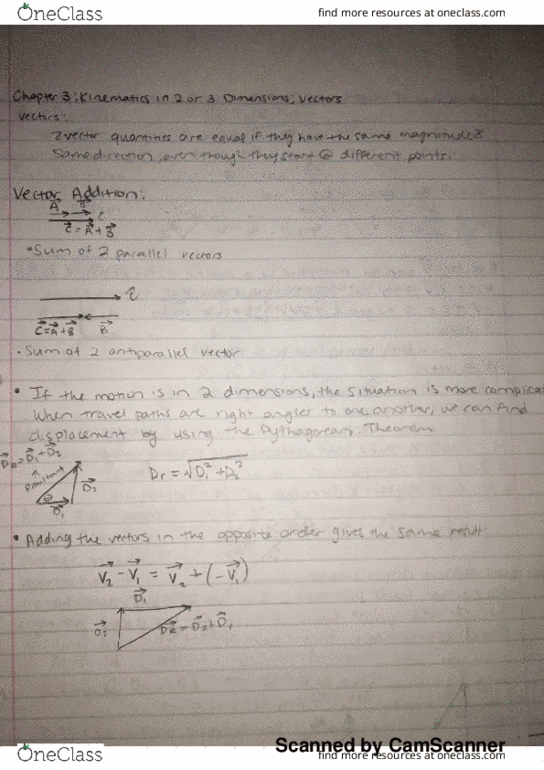 OneClass
find more resources at oneclass.com
Chapter 3: Kinematics in 2 or 3 Dimensions; Vectors
Vectors:
2 vector quantities are equal if they have the same magnitude &
Same direction, even though they start @ different points.
Vector Addition:
A B
C
C = A + B
• Sum of 2 parallel vectors
C = A + B B
• Sum of 2 antiparallel vector
• If the motion is in 2 dimensions, the situation is more complica
When travel paths are right angles to one another, we can find
displacement by using the Pythagorean Theorem
DR = D1 + D2
Resultant
D2
Dr = √D1² + D2²
θ
D1
• Adding the vectors in the opposite order gives the same result.
V2 - V1 = V2 + (-V1)
D1
D2 DR = D2 + D1
Scanned by CamScanner
OneClass
find more resources at oneclass.com